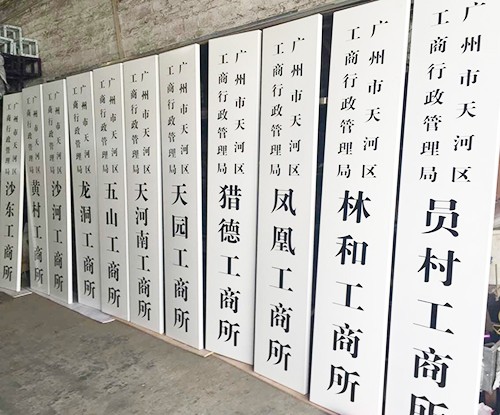 广州市天河区
工商行政管理局
沙东工商所
广州市天河区
工商行政管理局
黄村工商所
广州市天河区
工商行政管理局
沙河工商所
广州市天河区
工商行政管理局
龙洞工商所
广州市天河区
工商行政管理局
五山工商所
广州市天河区
工商行政管理局
天河南工商所
广州市天河区
工商行政管理局
天园工商所
广州市天河区
工商行政管理局
猎德工商所
广州市天河区
工商行政管理局
凤凰工商所
广州市天河区
工商行政管理局
林和工商所
广州市天河区
工商行政管理局
员村工商所